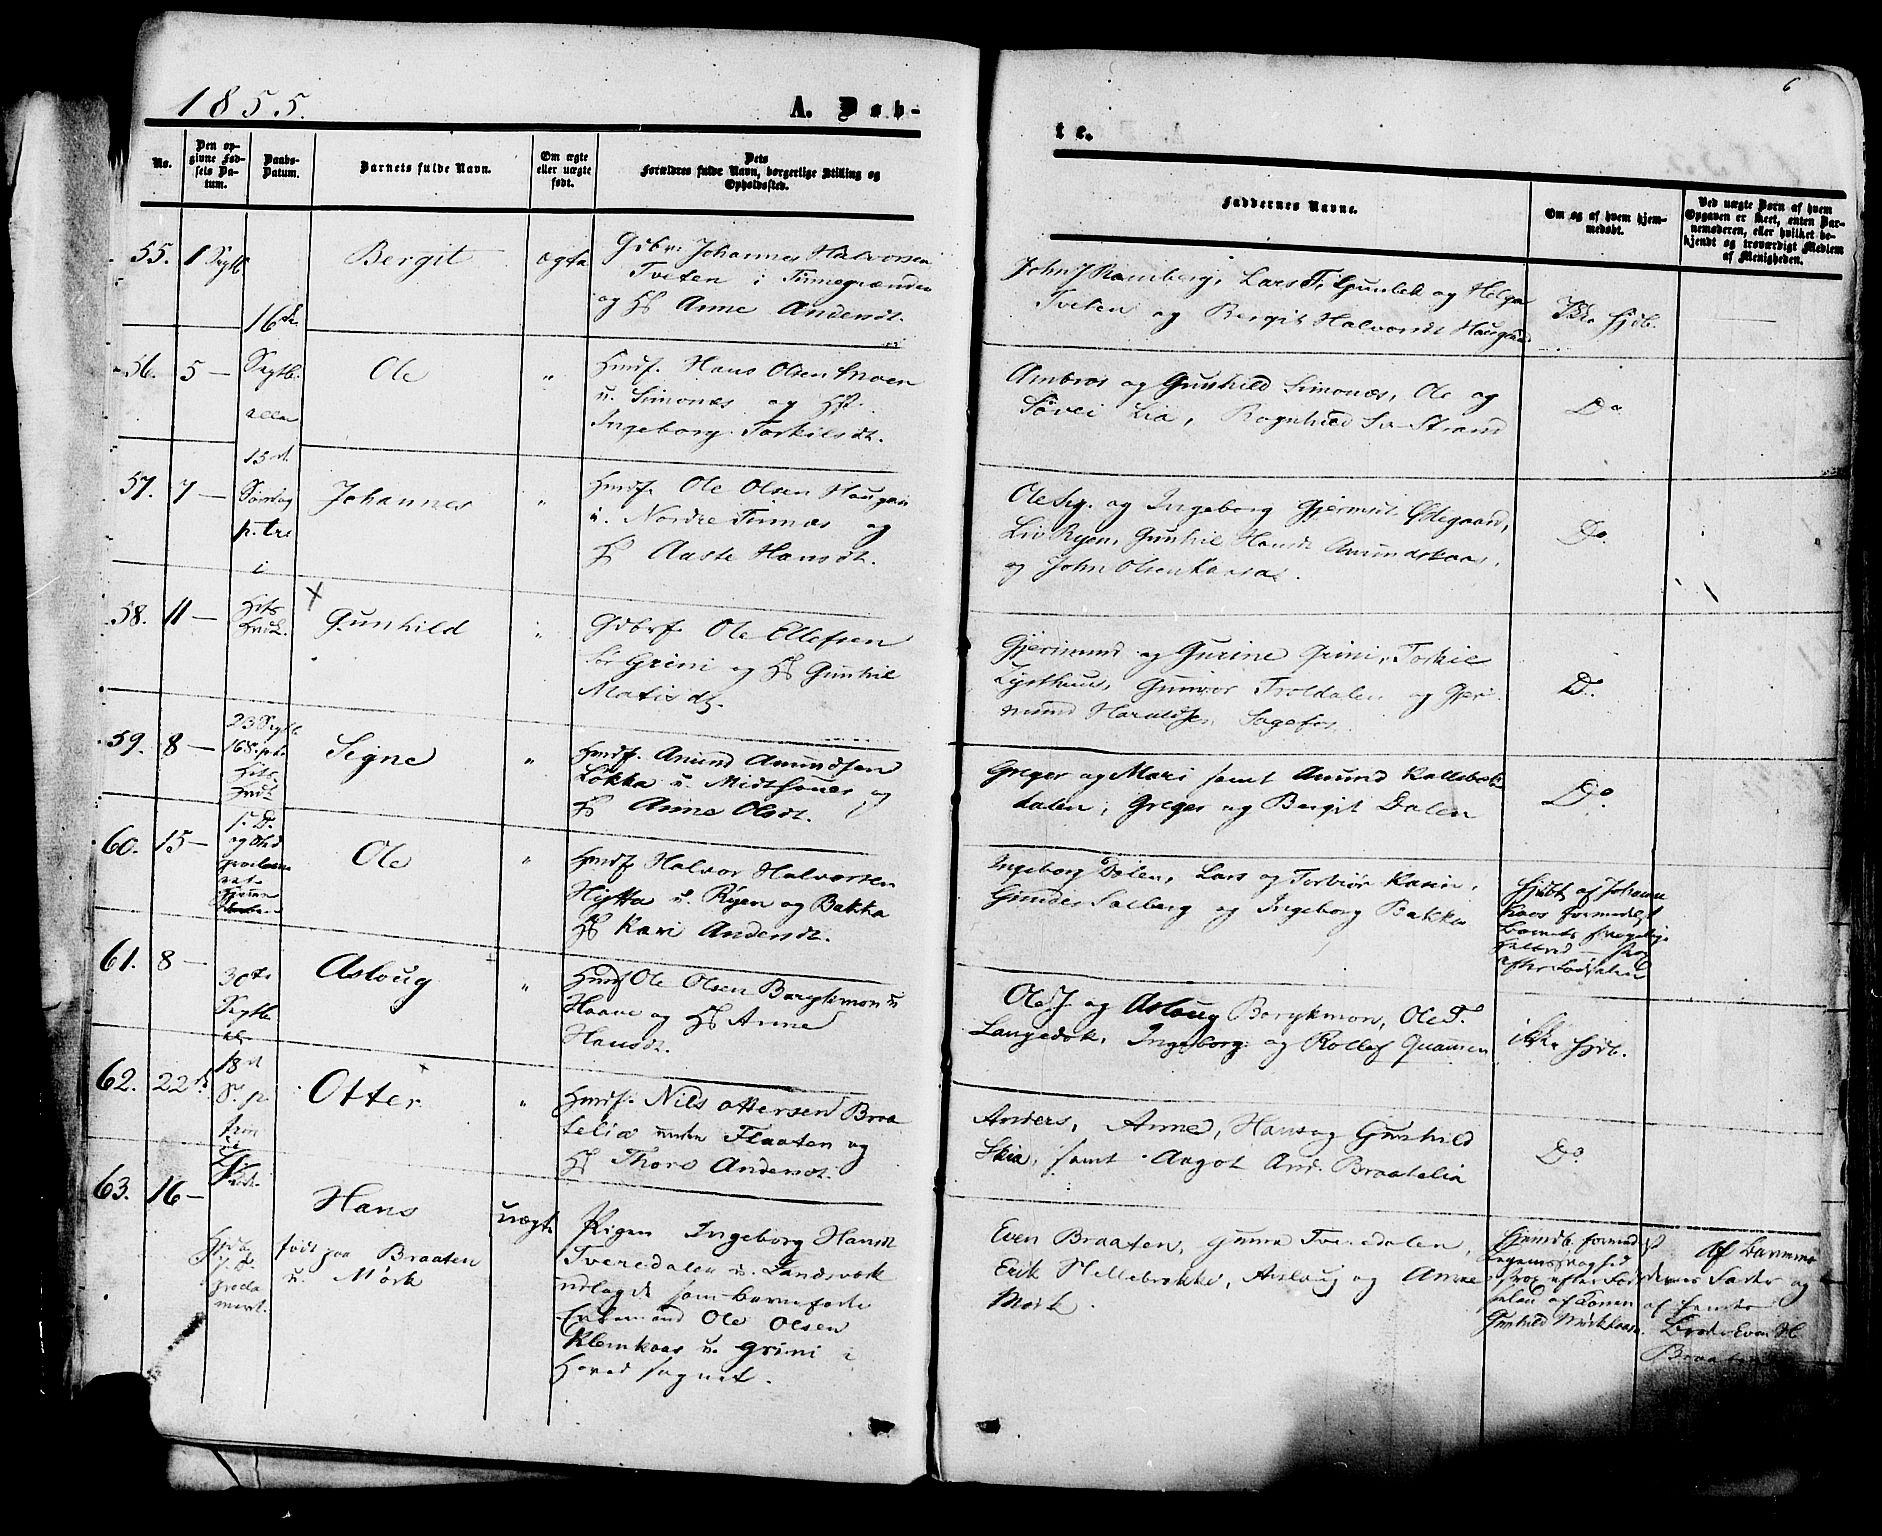 1855.
A. Døb-
te.
6
No.
Den op-
givne Fød-
sels Da-
tum.
Daabs-
Datum.
Barnets fulde Navn.
Om ægte
eller uægte
født.
Dets
Forældres fulde Navn, borgerlige Stilling og
Opholdssted.
Faddernes Navne.
Om og af hvem hjem-
medøbt.
Ved uægte Børn af hvem
Opgaven er skeet, enten Bar-
nemoderen, eller hvilket be-
kjendt og troværdigt Medlem
af Menigheden.
55. 1 Septb
16de
Bergit
ægte
Gdbr: Johannes Halvorsen
Tveten i Tinnegrænden
og H Anne Andersdt.
John J Ramberg, Lars T. Gunlek og Helga
Tveten og Bergit Halvorsdt Haugen
Ikke Hjdb.
56. 5 —
Septb.
Ole
"
Hmdf. Hans Olsen Moen
u. Simonæs og H
Ingeborg Torkilsdt.
Ambros og Gunhild Simonæs, Ole og
Søvei Lia, Ragnhild Strand
Do
57. 7 —
15d.
Søndag
p. tre
i
Johannes
"
Hmdf. Ole Olsen Haugen
u. Nordre Tinnæs og
H Aaste Hansdt.
Ole og Ingeborg Gjermsdt Ødegaard,
Liv Ryen, Gunhil Hansdt Amundskaas,
og John Olsen Kaasa.
Do.
58. 11 —
X
Gunhild
"
Gdbrf. Ole Ellefsen
Sør Grini og H Gunhil
Matisdt.
Gjermund og Gurine Grini, Torkil
Lysthuus, Gunvor Troldalen og Gjer
mund Haraldsen Sagefos.
Do.
59. 8 —
23 Septb
16 S. p.
Signe
"
Hmdf. Amund Amundsen
Løkka u. og
H Anne Olsdt.
Greger og Mari samt Amund Kallebæk
dalen, Greger og Bergit Dalen
Do.
60. 15 —
Ole
"
Hmdf Halvor Halvorsen
Hytta u. Ryen og Bakka
H Kari Andersdt.
Ingeborg Dalen, Lars og Torbiør Kasin,
Gunder Salberg og Ingeborg Bakka
Hjdbt af Johanne
Kaas formedelst
Barnets
strax
efter Fødselen
61. 8 —
30te
Septb
Asloug
"
Hmdf Ole Olsen Bergkmon u
Haave og H Anne
Hansdt.
Ole J. og Aslaug Bergkmon, Ole T.
Langedok, Ingeborg og Rollef Quamen
ikke Hjdb.
62. 22d
18d
S. p.
Otter
"
Hmdf. Nils Ottersen Braa
telia under Flaaten og
H Thore Andersdt.
Anders, Anne, Hans og Gunhild
Skia, samt Aagot And. Braatelia
Do.
63. 16 —
Hans
født paa Braaten
u. Mørk
uægte
Pigen Ingeborg Hansdt
Tveredalen u. Landsverk
udlagde som Barnefader
Enkemand Ole Olsen
Klemkaas u. Grini i
Hovedsognet.
Even Braaten, Gunne Tveredalen,
Erik Hellebrekke, Aslaug og Anne
Mørk.
Hjemdb. formedelst
Legemssvaghed
strax efter Fød
selen af Konen
Gunhild Mørkkaasa.
Af Barnemo
deres Fader og
af hendes
Broder Even H.
Braaten